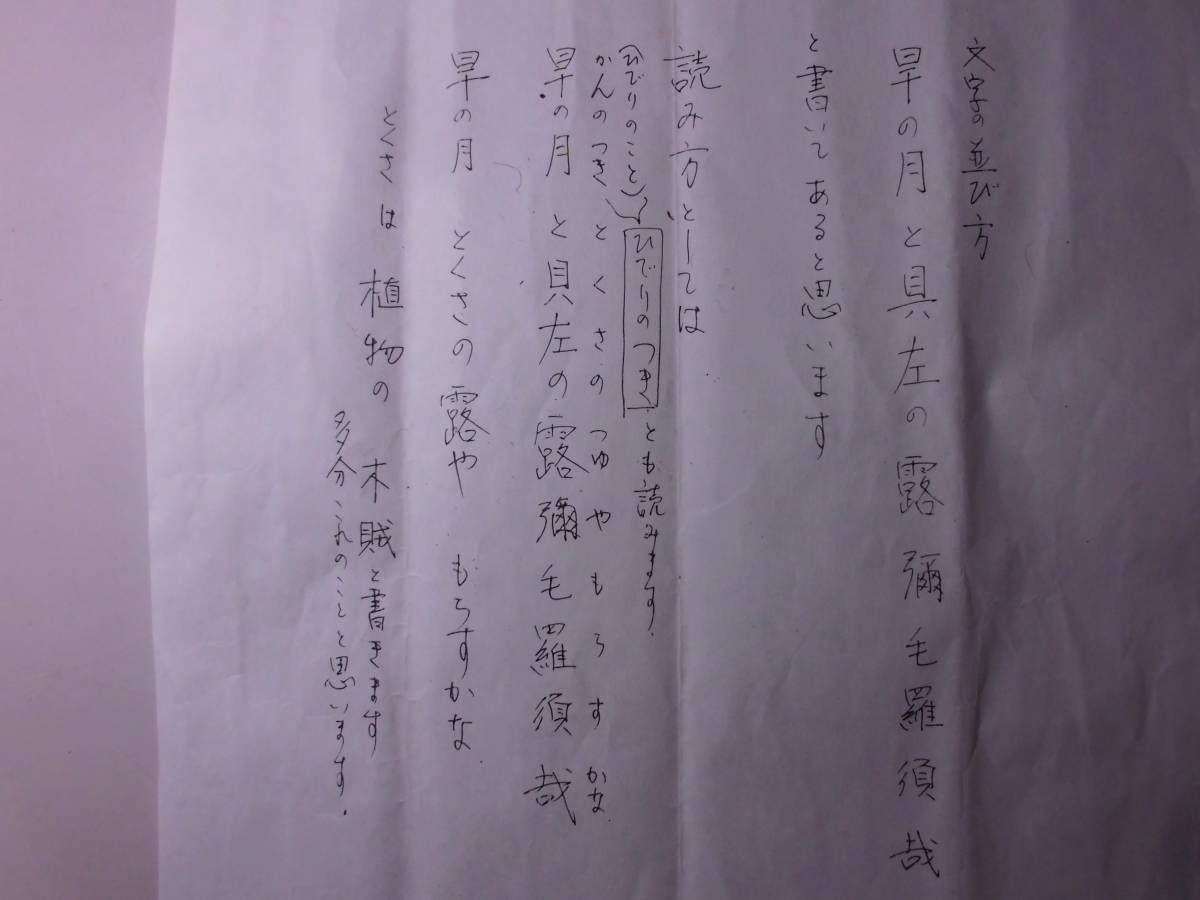 文字の並び方
旱の月と具左の露彌毛羅須哉
と書いてあると思います
読み方としては
(ひでりのこと) ひでりのつき とも読みます.
かんのつき とくさの つゆやもらすかな
旱の月と貝左の露彌毛羅須哉
旱の月 とくさの露や もらすかな
とくさは 植物の 木賊と書きます
多分これのことと思います.